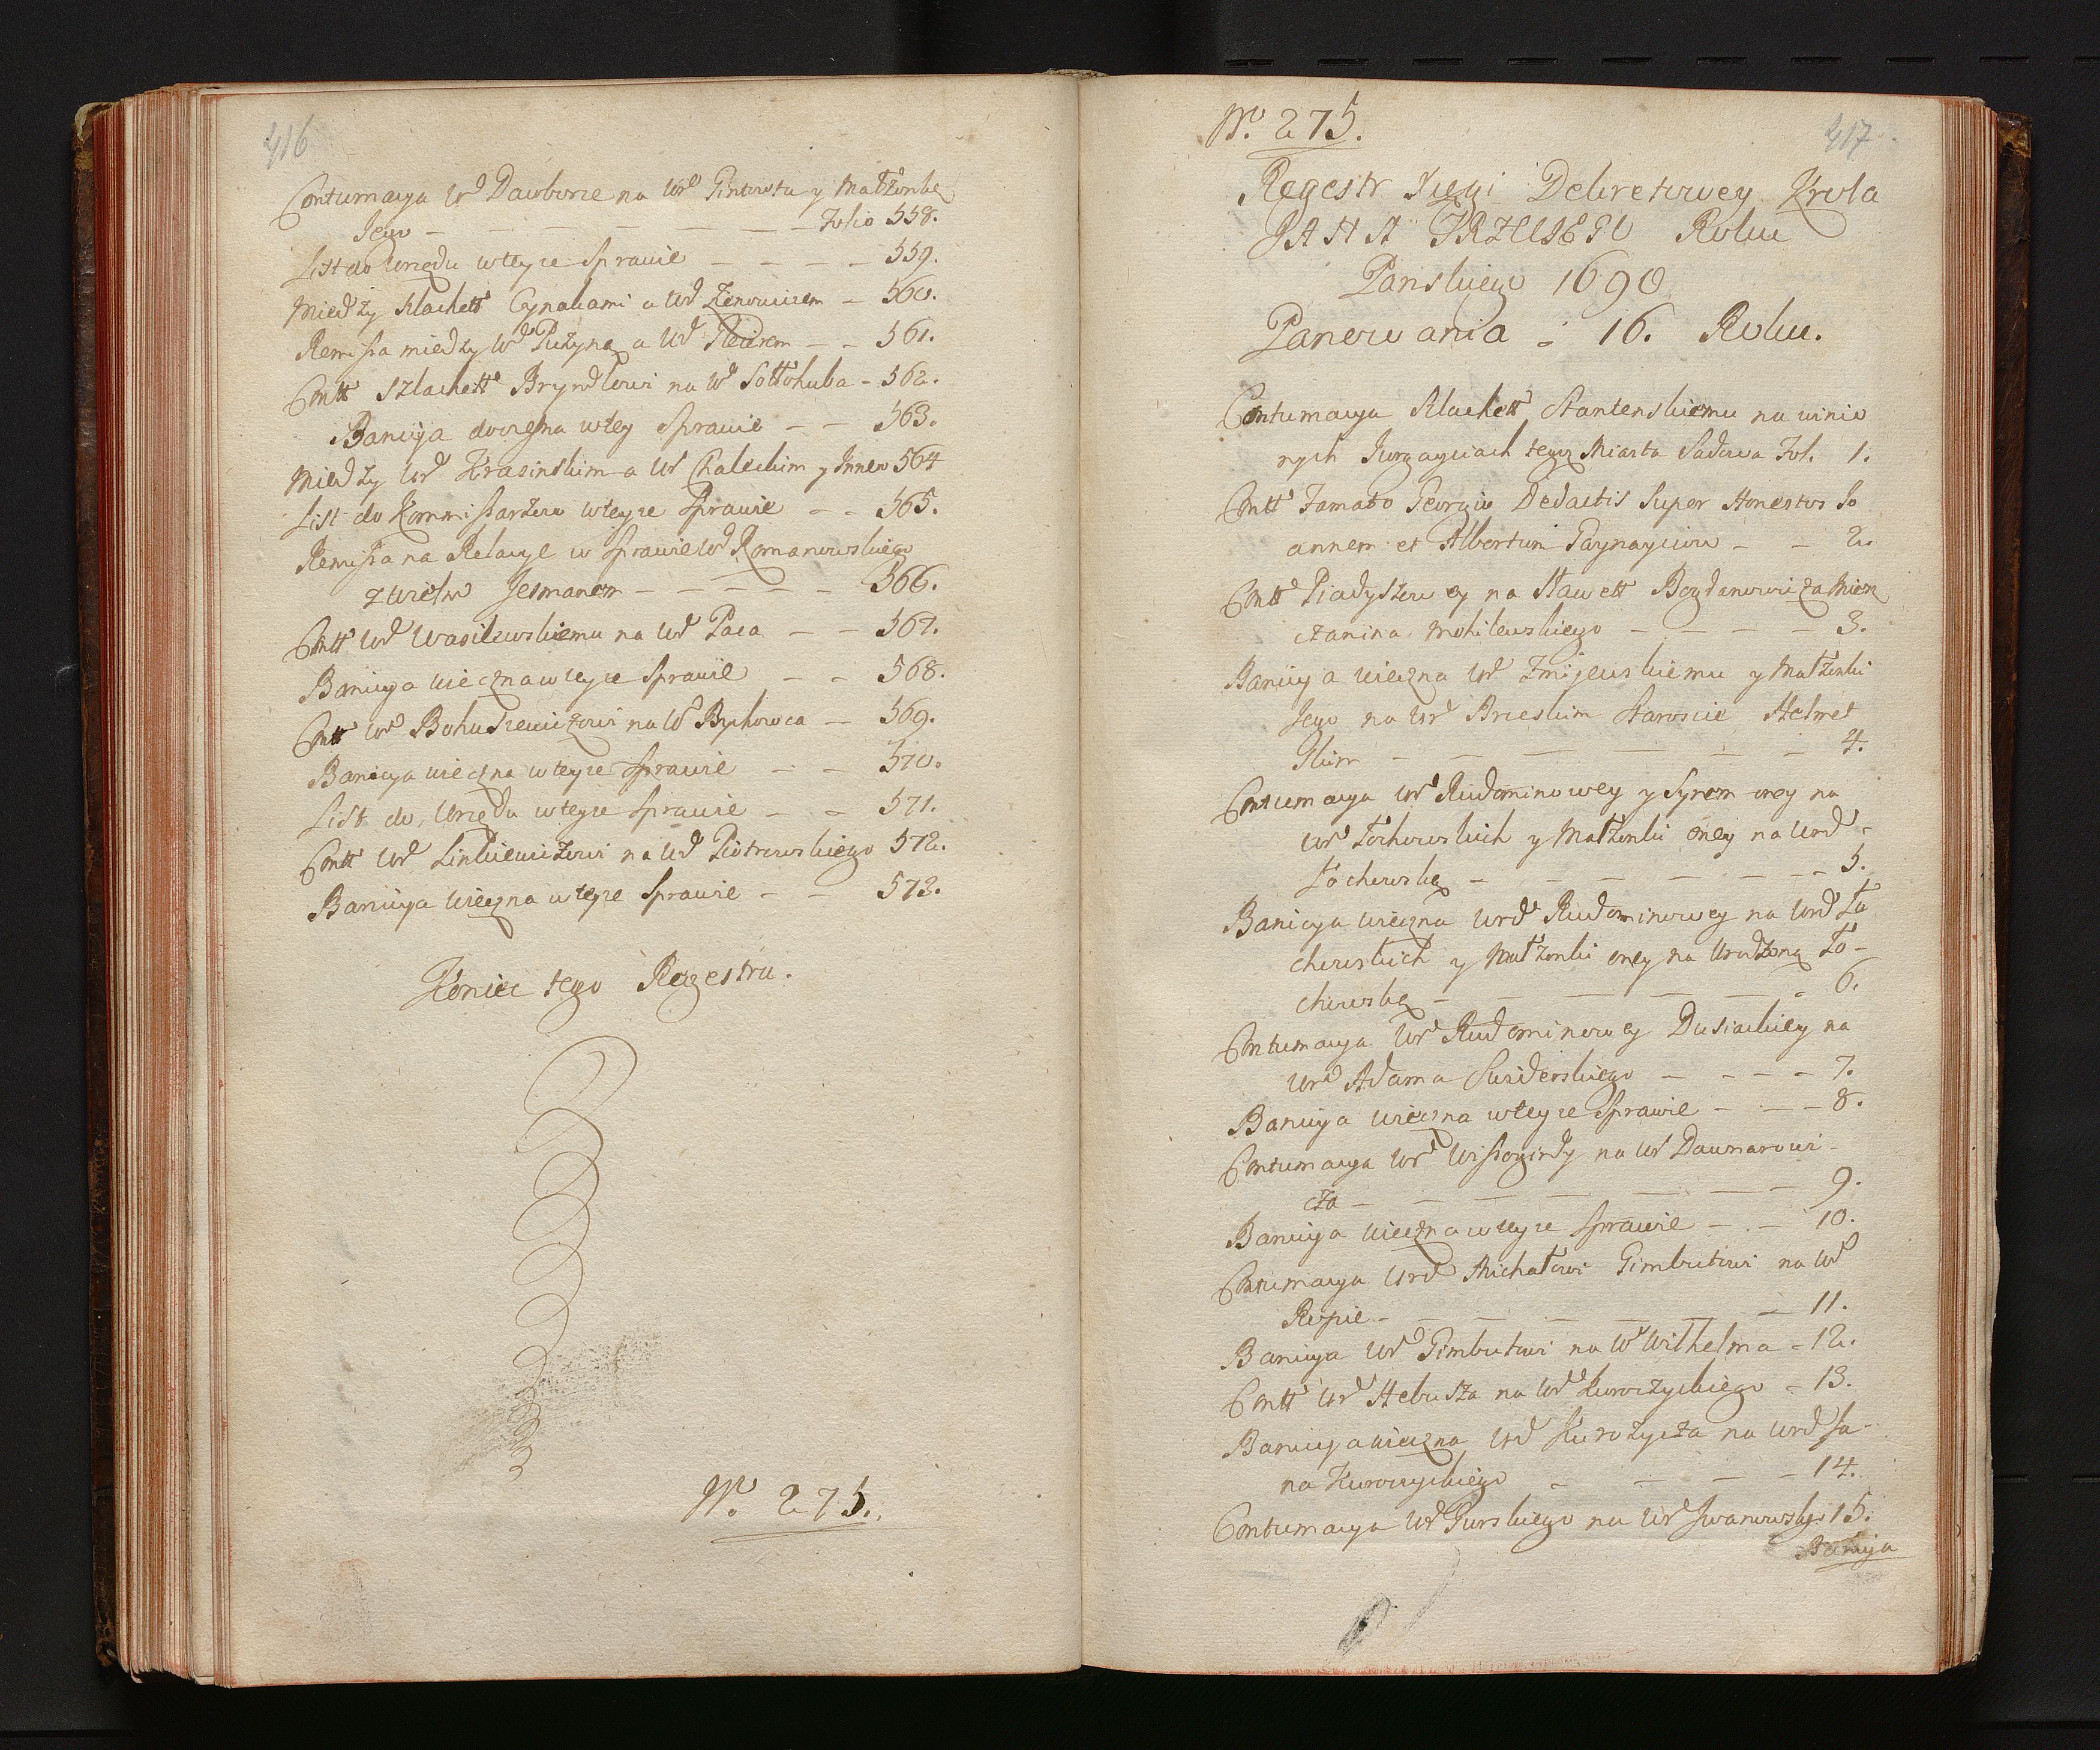 416
Contumacya Ur Dawborze na Ur Gintowta y Małżonkę
Jego — — — — — — Folio 558.
List do Urzędu wteyze Sprawie — — — — 559.
Między Szlachett Cynakami a Urd Zienowiczem — 560.
Remissa miedzy Ur Puzyną a Ur — — 561.
Contt Szlachett Bryndzowi na Ur Sołłohuba — 562.
Banicya doczesna wtey Sprawie — — 563.
Między Urd Krasinskim a Ur Chaleckim y Innem 564
List do Kommissarzow wteyze Sprawie — — 565.
Remissa na Relacye w Sprawie Urd Romanowskiego
z Jesmanem — — — — — 566.
Contt Urd Wasilewskiemu na Urd Paca — — 567.
Banicya wieczna wteyze Sprawie — — 568.
Contt Urd Bohuszewiczowi na Ur Bychowca — 569.
Banicya wieczna wteyze Sprawie — — 570.
List do Urzędu wteyze Sprawie — — 571.
Contt Urd Linkiewiczowi na Urd Piotrowskiego 572.
Banicya wieczna wteyze Sprawie — — 573.
Koniec tego Regestru.
No. 275.
No. 275.
417.
Regestr Xięgi Dekretowey Krola
JANA TRZECIEGO Roku
Panskiego 1690
Panowania : 16. Roku.
Contumacya Szlachett Stantenskiemu na winio
nych Jurgayciach tegoz Miasta Sadowa Fol. 1.
Contt Famato Georgio Dedactis Super Honestos Jo
annem et Albertum Paynayciow — — 2.
Contt Piadyszewey na Sławett Bogdanowicza Miesz
czanina Mohilewskiego — — — — 3.
Banicya wieczna Urd Zmijewskiemu y Małżonki
Jego na Ur Brzeskim Staroscie Helmer
— — — — — — 4.
Contumacya Urd Rudominowey y Synom oney na
Urd Łochowskich y Małżonki oney na Urd
Łochowskę — — — — — — 5.
Banicya wieczna Urd Rudominowey na Urd Ło
chowskich y Małżonki oney na Urodzoną Ło-
chowskę — — — — — 6.
Contumacya Urd Rudominowey Dusiackiey na
Urd Adama Swiderskiego — — — — 7.
Banicya wieczna wteyze Sprawie — — — 8.
Contumacya Urd Wissogirdy na Ur Dawnarowi-
cza — — — — — — 9.
Banicya wieczna wteyze Sprawie — — 10.
Contumacya Urd Michałowi Gimbutowi na Urd
Ropie — — — — — — 11.
Banicya Urd Gimbutowi na Ur Wilhelma — 12.
Contt Urd Hebusza na Urd Kurozyckiego — 13.
Banicya wieczna Urd Kurozycza na Urd Ja-
na Kuroczyckiego — — — — 14.
Contumacya Urd Gurskiego na Urd Iwanowskgo 15.
Banicya